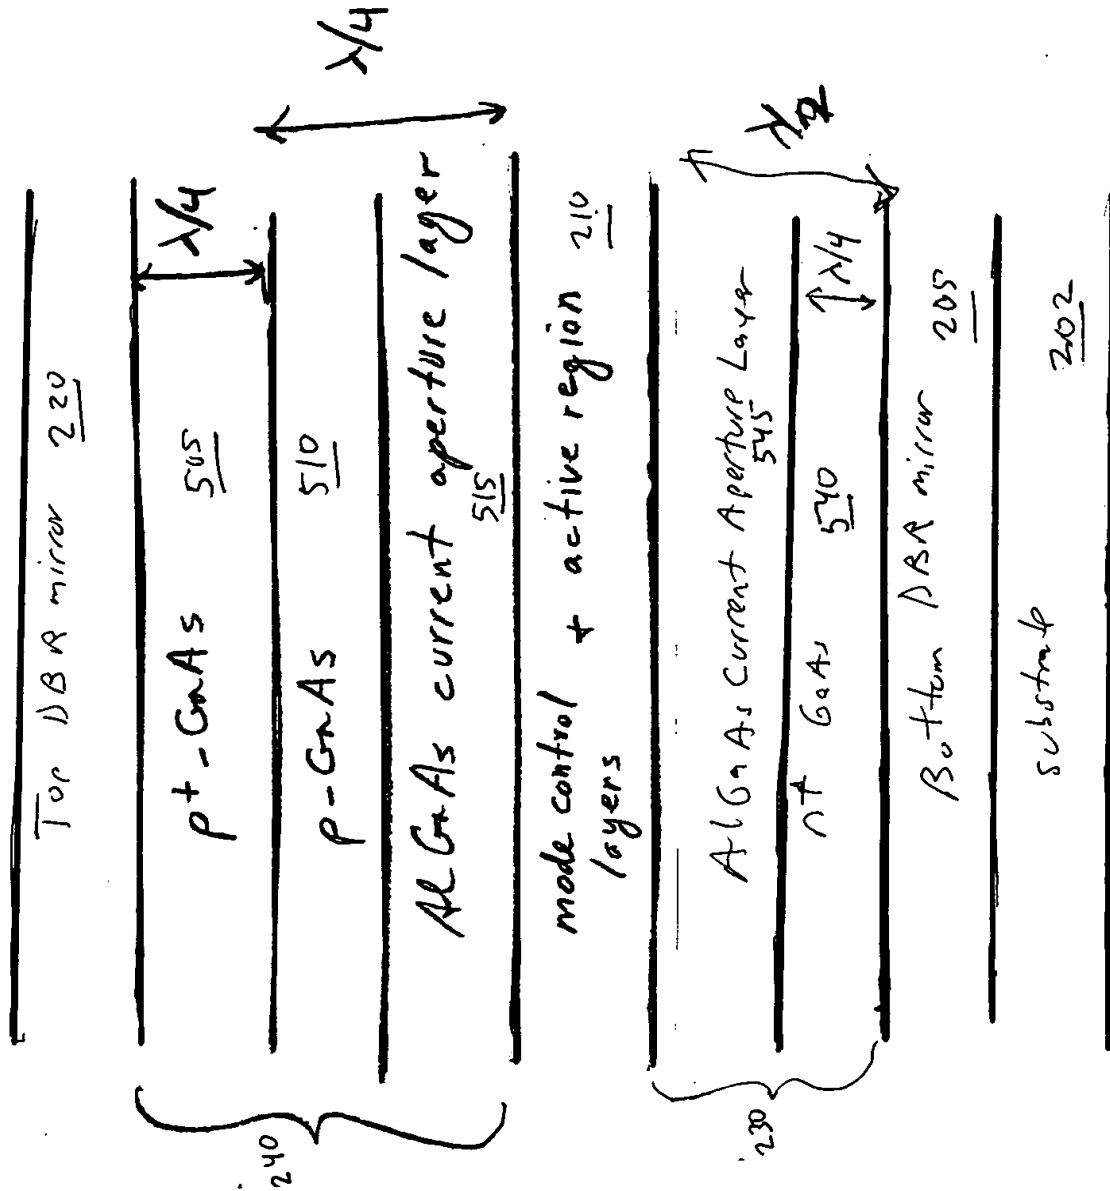 Top DBR mirror 220
λ/4
p+-GaAs 505
λ/4
p-GaAs 510
AlGaAs current aperture layer
515
240
mode control + active region 210
layers
AlGaAs Current Aperture Layer
545
n+ GaAs 540
λ/4
230
Bottom DBR mirror 205
substrate 202